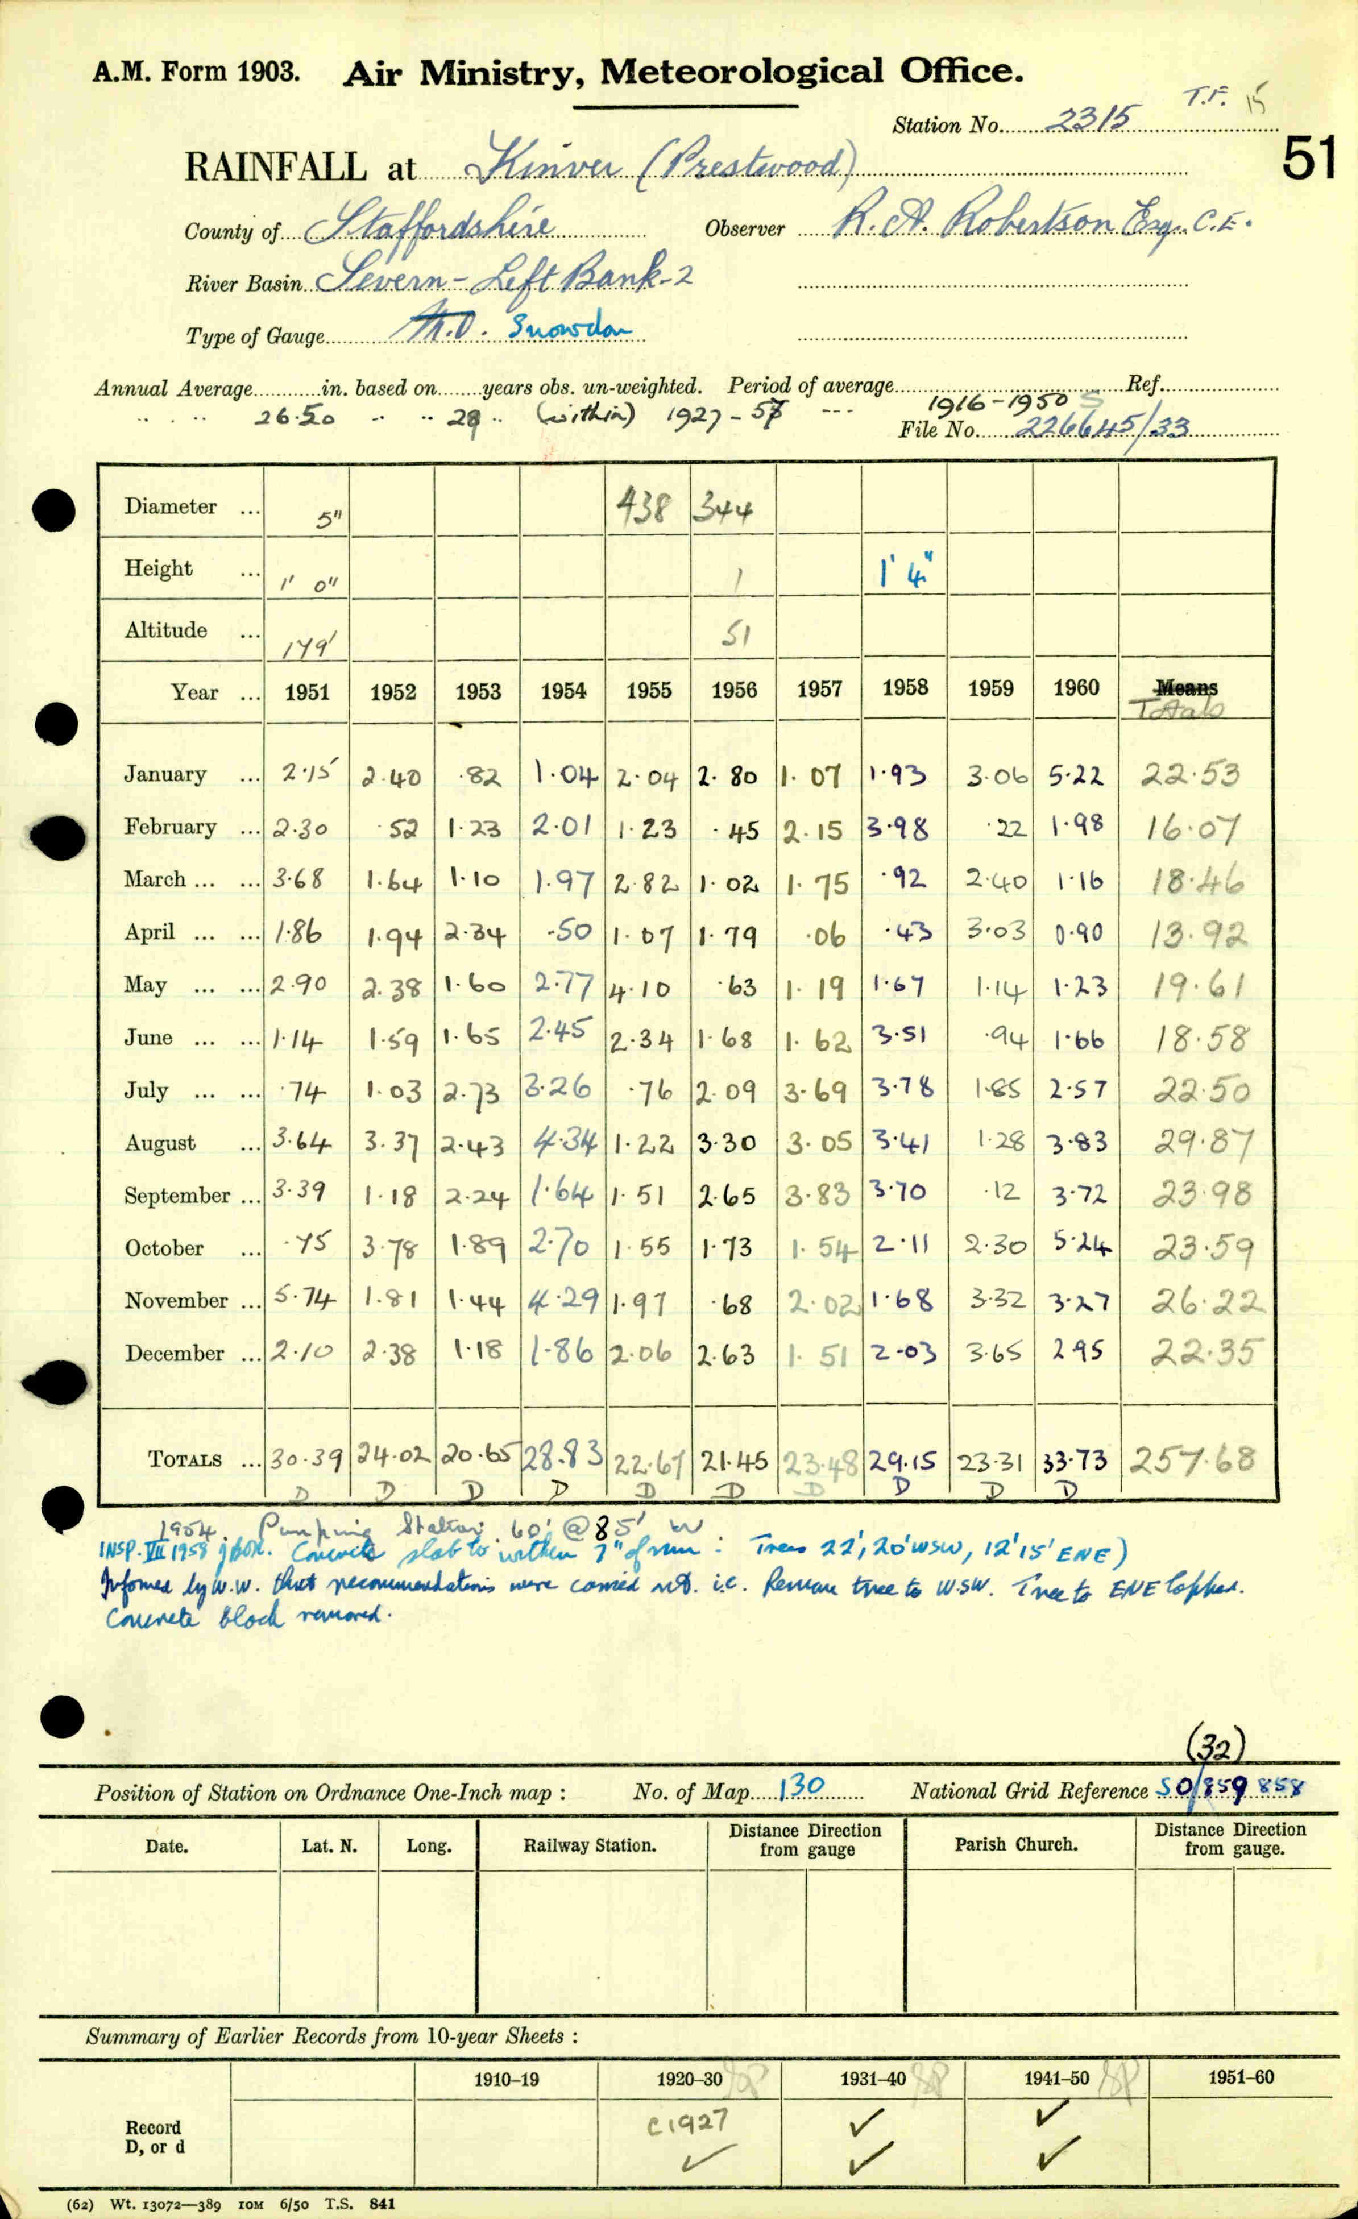 A.M. Form 1903. Air Ministry, Meteorological Office.
T.F. 15
Station No. 2315
51
RAINFALL at Kinver (Prestwood)
County of Staffordshire Observer R. A. Robertson Esq. C.E.
River Basin Severn - Left Bank-2
Type of Gauge M.O. Snowdon
Annual Average in. based on years obs. un-weighted. Period of average 1916-1950 S Ref.
" " 26.50 " " 29 " (within) 1927-57 ---
File No. 226645/33
Diameter ... 5" 438 344
Height ... 1' 0" 1 1' 4"
Altitude ... 179' 51
Year ... 1951 1952 1953 1954 1955 1956 1957 1958 1959 1960 Means
Totals
January ... 2.15 2.40 .82 1.04 2.04 2.80 1.07 1.93 3.06 5.22 22.53
February ... 2.30 .52 1.23 2.01 1.23 .45 2.15 3.98 .22 1.98 16.07
March ... ... 3.68 1.64 1.10 1.97 2.82 1.02 1.75 .92 2.40 1.16 18.46
April ... ... 1.86 1.94 2.34 .50 1.07 1.79 .06 .43 3.03 0.90 13.92
May ... ... 2.90 2.38 1.60 2.77 4.10 .63 1.19 1.67 1.14 1.23 19.61
June ... ... 1.14 1.59 1.65 2.45 2.34 1.68 1.62 3.51 .94 1.66 18.58
July ... ... .74 1.03 2.73 3.26 .76 2.09 3.69 3.78 1.85 2.57 22.50
August ... 3.64 3.37 2.43 4.34 1.22 3.30 3.05 3.41 1.28 3.83 29.87
September ... 3.39 1.18 2.24 1.64 1.51 2.65 3.83 3.70 .12 3.72 23.98
October ... .75 3.78 1.89 2.70 1.55 1.73 1.54 2.11 2.30 5.24 23.59
November ... 5.74 1.81 1.44 4.29 1.97 .68 2.02 1.68 3.32 3.27 26.22
December ... 2.10 2.38 1.18 1.86 2.06 2.63 1.51 2.03 3.65 2.95 22.35
TOTALS ... 30.39 24.02 20.65 28.83 22.67 21.45 23.48 29.15 23.31 33.73 257.68
D D D D D D D D D D
1954. Pumping Station. 60' @ 85' W
INSP. VII 1958 Concrete slab to within 7" of rim : Trees 22', 20' WSW, 12' 15' ENE)
Informed by W.W. that recommendations were carried out. i.e. Remove tree to WSW. Tree to ENE lopped.
Concrete block removed.
(32)
Position of Station on Ordnance One-Inch map : No. of Map 130 National Grid Reference SO/859 858
Date. Lat. N. Long. Railway Station. Distance Direction from gauge Parish Church. Distance Direction from gauge.
Summary of Earlier Records from 10-year Sheets :
1910–19 1920–30 1931–40 1941–50 1951–60
Record c1927 ✓ ✓
D, or d ✓ ✓ ✓
(62) Wt. 13072—389 10M 6/50 T.S. 841